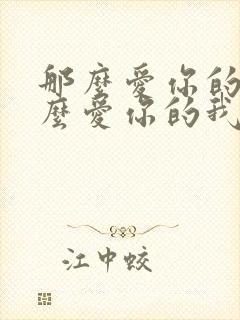 那麼愛你的
麼愛你的我
江中蛟